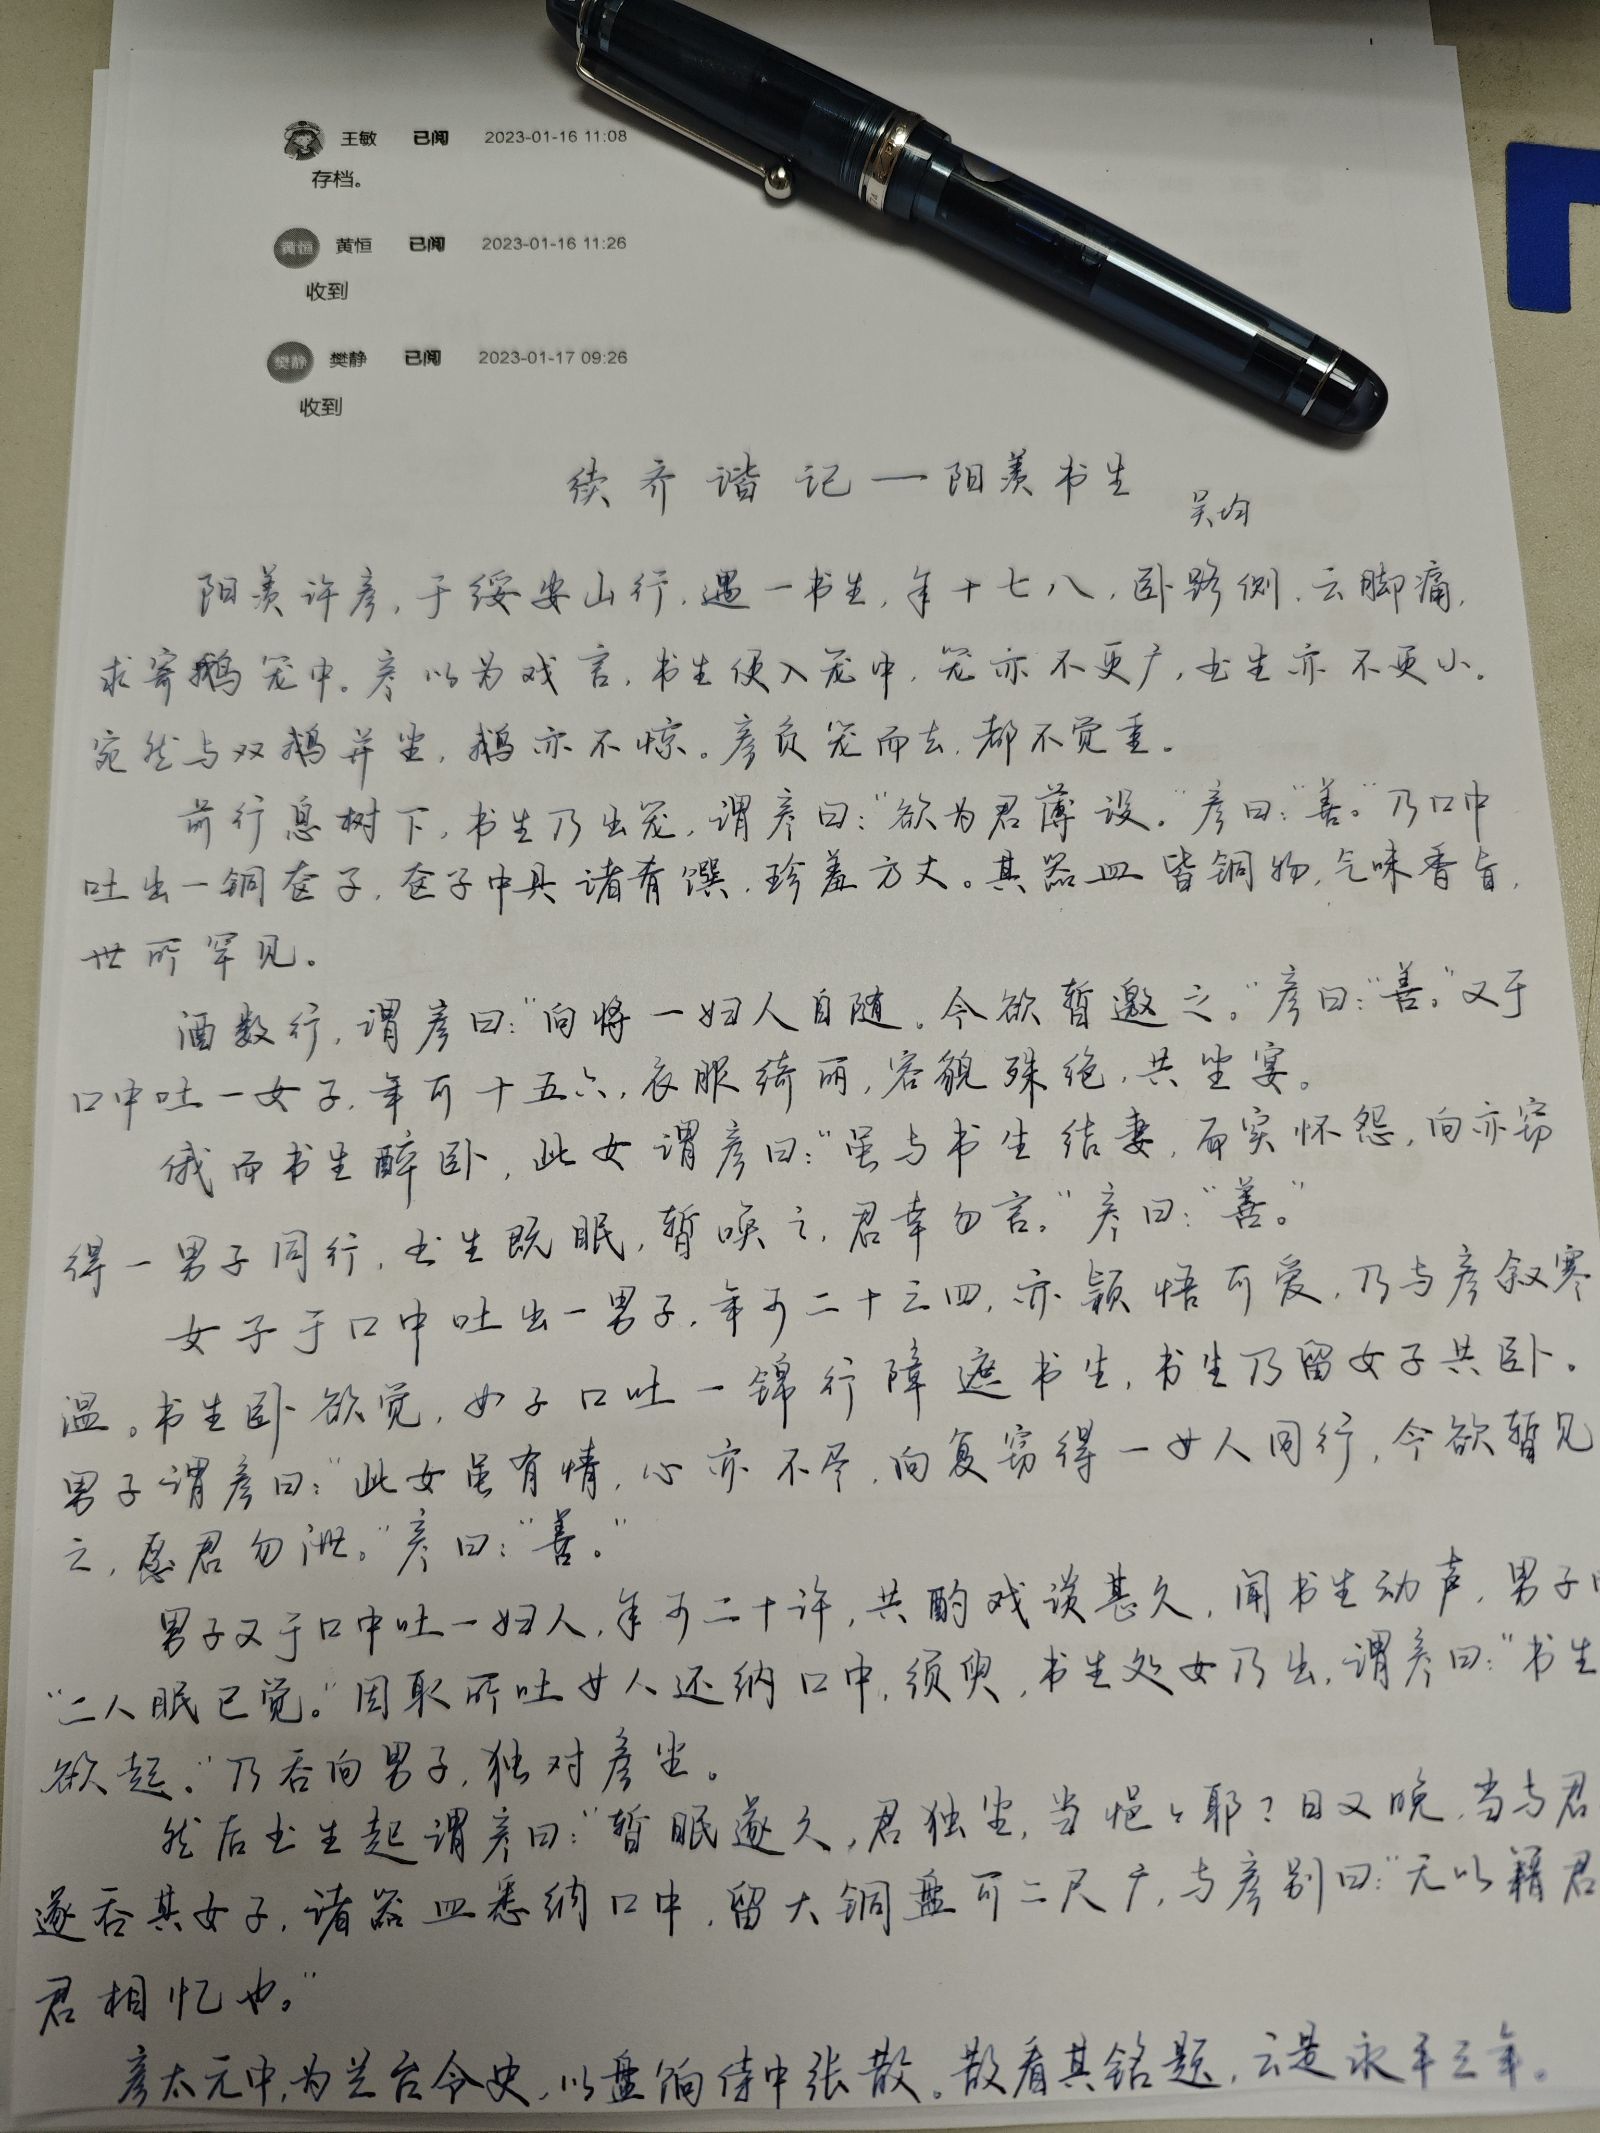 王敏 已阅 2023-01-16 11:08
存档。
黄恒 黄恒 已阅 2023-01-16 11:26
收到
樊静 樊静 已阅 2023-01-17 09:26
收到
续齐谐记一阳羡书生
吴均
阳羡许彦,于绥安山行,遇一书生,年十七八,卧路侧,云脚痛,
求寄鹅笼中。彦以为戏言,书生便入笼中,笼亦不更广,书生亦不更小。
宛然与双鹅并坐,鹅亦不惊。彦负笼而去,都不觉重。
前行息树下,书生乃出笼,谓彦曰:“欲为君薄设。”彦曰:“善。”乃口中
吐出一铜奁子,奁子中具诸肴馔,珍羞方丈。其器皿皆铜物,气味香旨,
世所罕见。
酒数行,谓彦曰:“向将一妇人自随。今欲暂邀之。”彦曰:“善。”又于
口中吐一女子,年可十五六,衣服绮丽,容貌殊绝,共坐宴。
俄而书生醉卧,此女谓彦曰:“虽与书生结妻,而实怀怨,向亦窃
得一男子同行,书生既眠,暂唤之,君幸勿言。”彦曰:“善。”
女子于口中吐出一男子,年可二十三四,亦颖悟可爱,乃与彦叙寒
温。书生卧欲觉,女子口吐一锦行障遮书生,书生乃留女子共卧。
男子谓彦曰:“此女虽有情,心亦不尽,向复窃得一女人同行,今欲暂见
之,愿君勿泄。”彦曰:“善。”
男子又于口中吐一妇人,年可二十许,共酌戏谈甚久,闻书生动声,男子
“二人眠已觉。”因取所吐女人还纳口中,须臾,书生处女乃出,谓彦曰:“书生
欲起。”乃吞向男子,独对彦坐。
然后书生起谓彦曰:“暂眠遂久,君独坐,当悒々耶?日又晚,当与君
遂吞其女子,诸器皿悉纳口中,留大铜盘可二尺广,与彦别曰:“无以藉君
君相忆也。”
彦太元中,为兰台令史,以盘饷侍中张散。散看其铭题,云是永平三年。